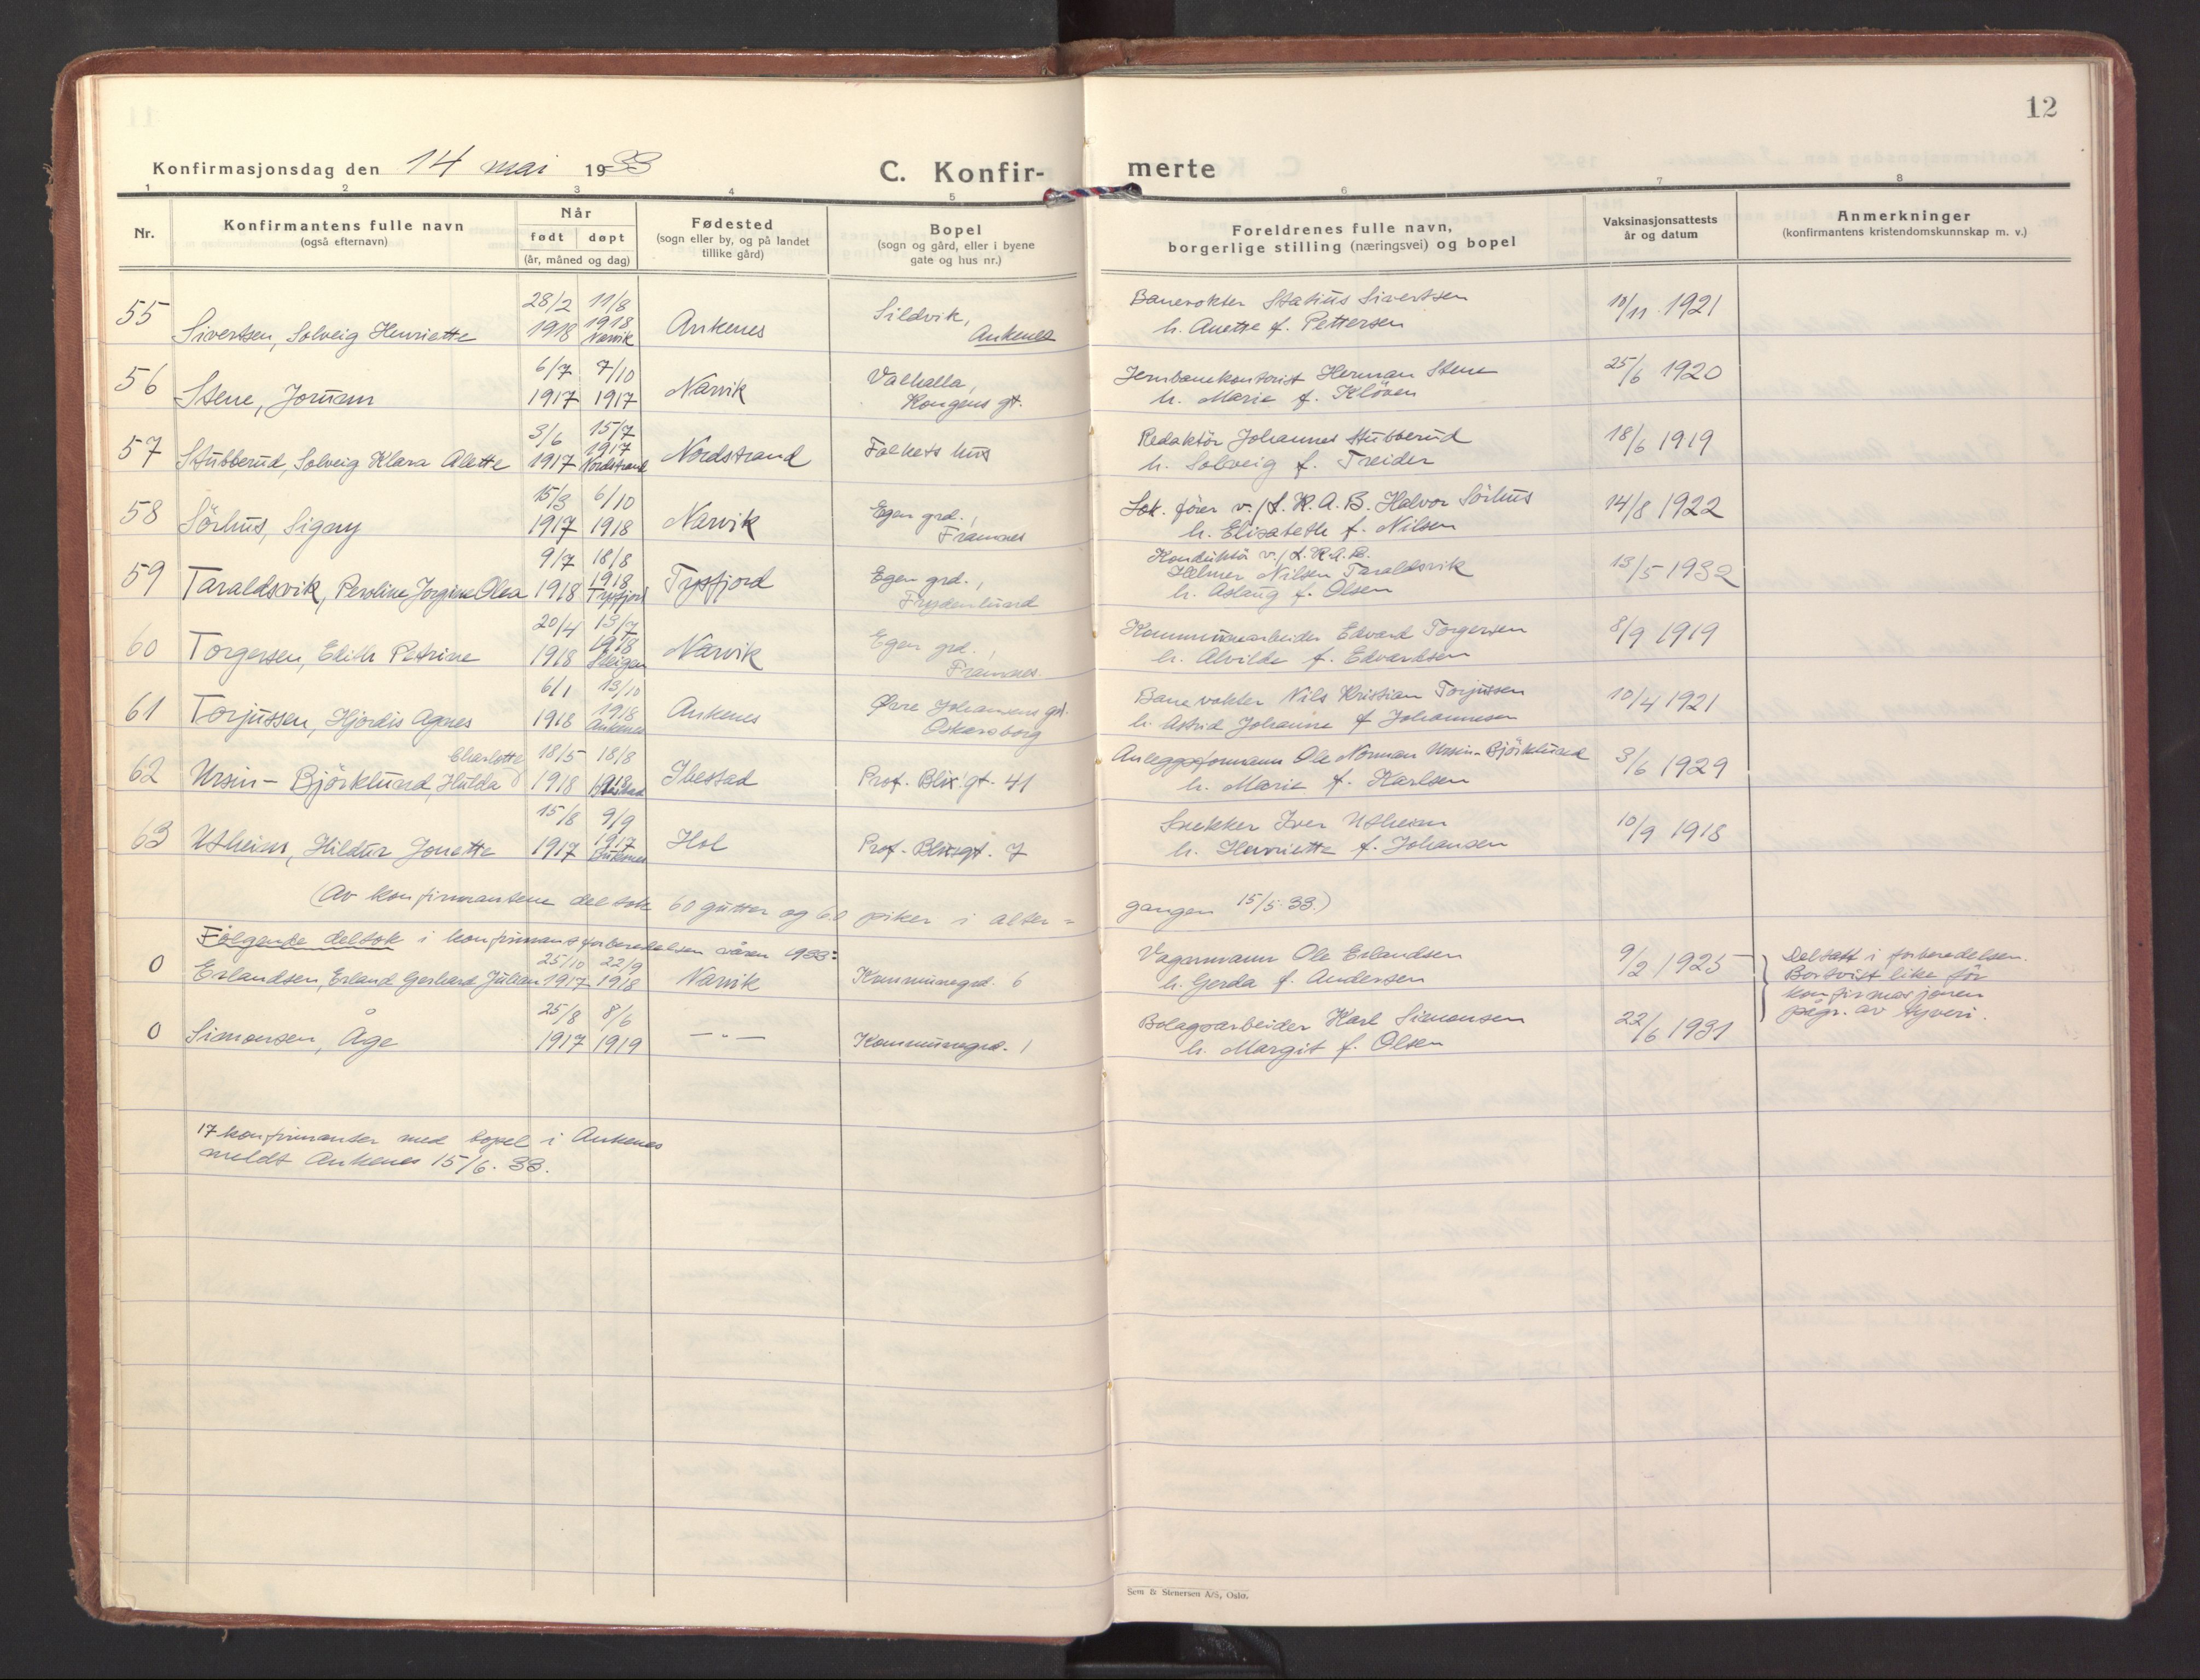 12
Konfirmasjonsdag den 14 mai 1933
C. Konfir-
merte
1 2 3 4 5 6 7 8
Nr.
Konfirmantens fulle navn
(også efternavn)
Når
født døpt
(år, måned og dag)
Fødested
(sogn eller by, og på landet
tillike gård)
Bopel
(sogn og gård, eller i byene
gate og hus nr.)
Foreldrenes fulle navn,
borgerlige stilling (næringsvei) og bopel
Vaksinasjonsattests
år og datum
Anmerkninger
(konfirmantens kristendomskunnskap m. v.)
55 28/2 11/8 Sildvik, Banevokter Statius Sivertsen 10/11 1921
Sivertsen, Solveig Henriette 1918 1918 Narvik Ankenes Ankenes h. Anette f. Pettersen
56 6/7 7/10 Valhalla, Jernbanekontorist Herman Stene 25/6 1920
Stene, Jorunn 1917 1917 Narvik Kongens gt. h. Marie f. Kløven
57 3/6 15/7 Redaktör Johannes Stubberud 18/6 1919
Stubberud, Solveig Klara Alette 1917 1917 Nordstrand Nordstrand Folkets hus h. Solveig f. Treider
58 15/3 6/10 Egen grd., Lok. fører v./L.K.A.B. Halvor Sörhus 14/8 1922
Sörhus, Signy 1917 1918 Narvik Framnes h. Elisabeth f. Nilsen
59 9/7 18/8 Egen grd., Konduktör v./L.K.A.B. 13/5 1932
Taraldsvik, Peroline Jorgine Olea 1918 1918 Tysfjord Tysfjord Frydenlund Helmer Nilsen Taraldsvik
h. Aslaug f. Olsen
60 20/4 13/7 Egen grd., Kommunearbeider Edvard Torgersen 8/9 1919
Torgersen, Edith Petrine 1918 1918 Steigen Narvik Framnes. h. Alvilde f. Edvardsen
61 6/1 13/10 Øvre Johansens grd. Banevokter Nils Kristian Torjussen 10/4 1921
Torjussen, Hjördis Agnes 1918 1918 Ankenes Ankenes Oskarsborg h. Astrid Johanne f. Johannesen
62 Charlotte 18/5 18/8 Anleggsformann Ole Norman Ursin-Björklund 3/6 1929
Ursin-Björklund, Hulda 1918 1918 Ibestad Ibestad Prof. Blix' gt. 41 h. Marie f. Karlsen
63 15/8 9/9 Snekker Iver Utheim 10/9 1918
Utheim, Hildur Jonette 1917 1917 Buksnes Hol Prof. Blixsgt. 7 h. Henriette f. Johansen
(Av konfirmantene deltok 60 gutter og 60 piker i alter=
gangen 15/5.33.)
Følgende deltok i konfirmantforberedelsen våren 1933:
0 25/10 22/9 Vognmann Ole Erlandsen 9/2 1925
Erlandsen, Erland Gerhard Julian 1917 1918 Narvik Kommunegrd. 6 h. Gerda f. Andersen
0 25/8 8/6 Bolagsarbeider Karl Simonsen 22/6 1931
Simonsen, Åge 1917 1919 — " — Kommunegrd. 1 h. Margit f. Olsen
Deltatt i forberedelsen.
Bortvist like før
konfirmasjonen
pågr. av tyveri.
17 konfirmanter med bopel i Ankenes
meldt Ankenes 15/6.33.
Sem & Stenersen A/S, Oslo.